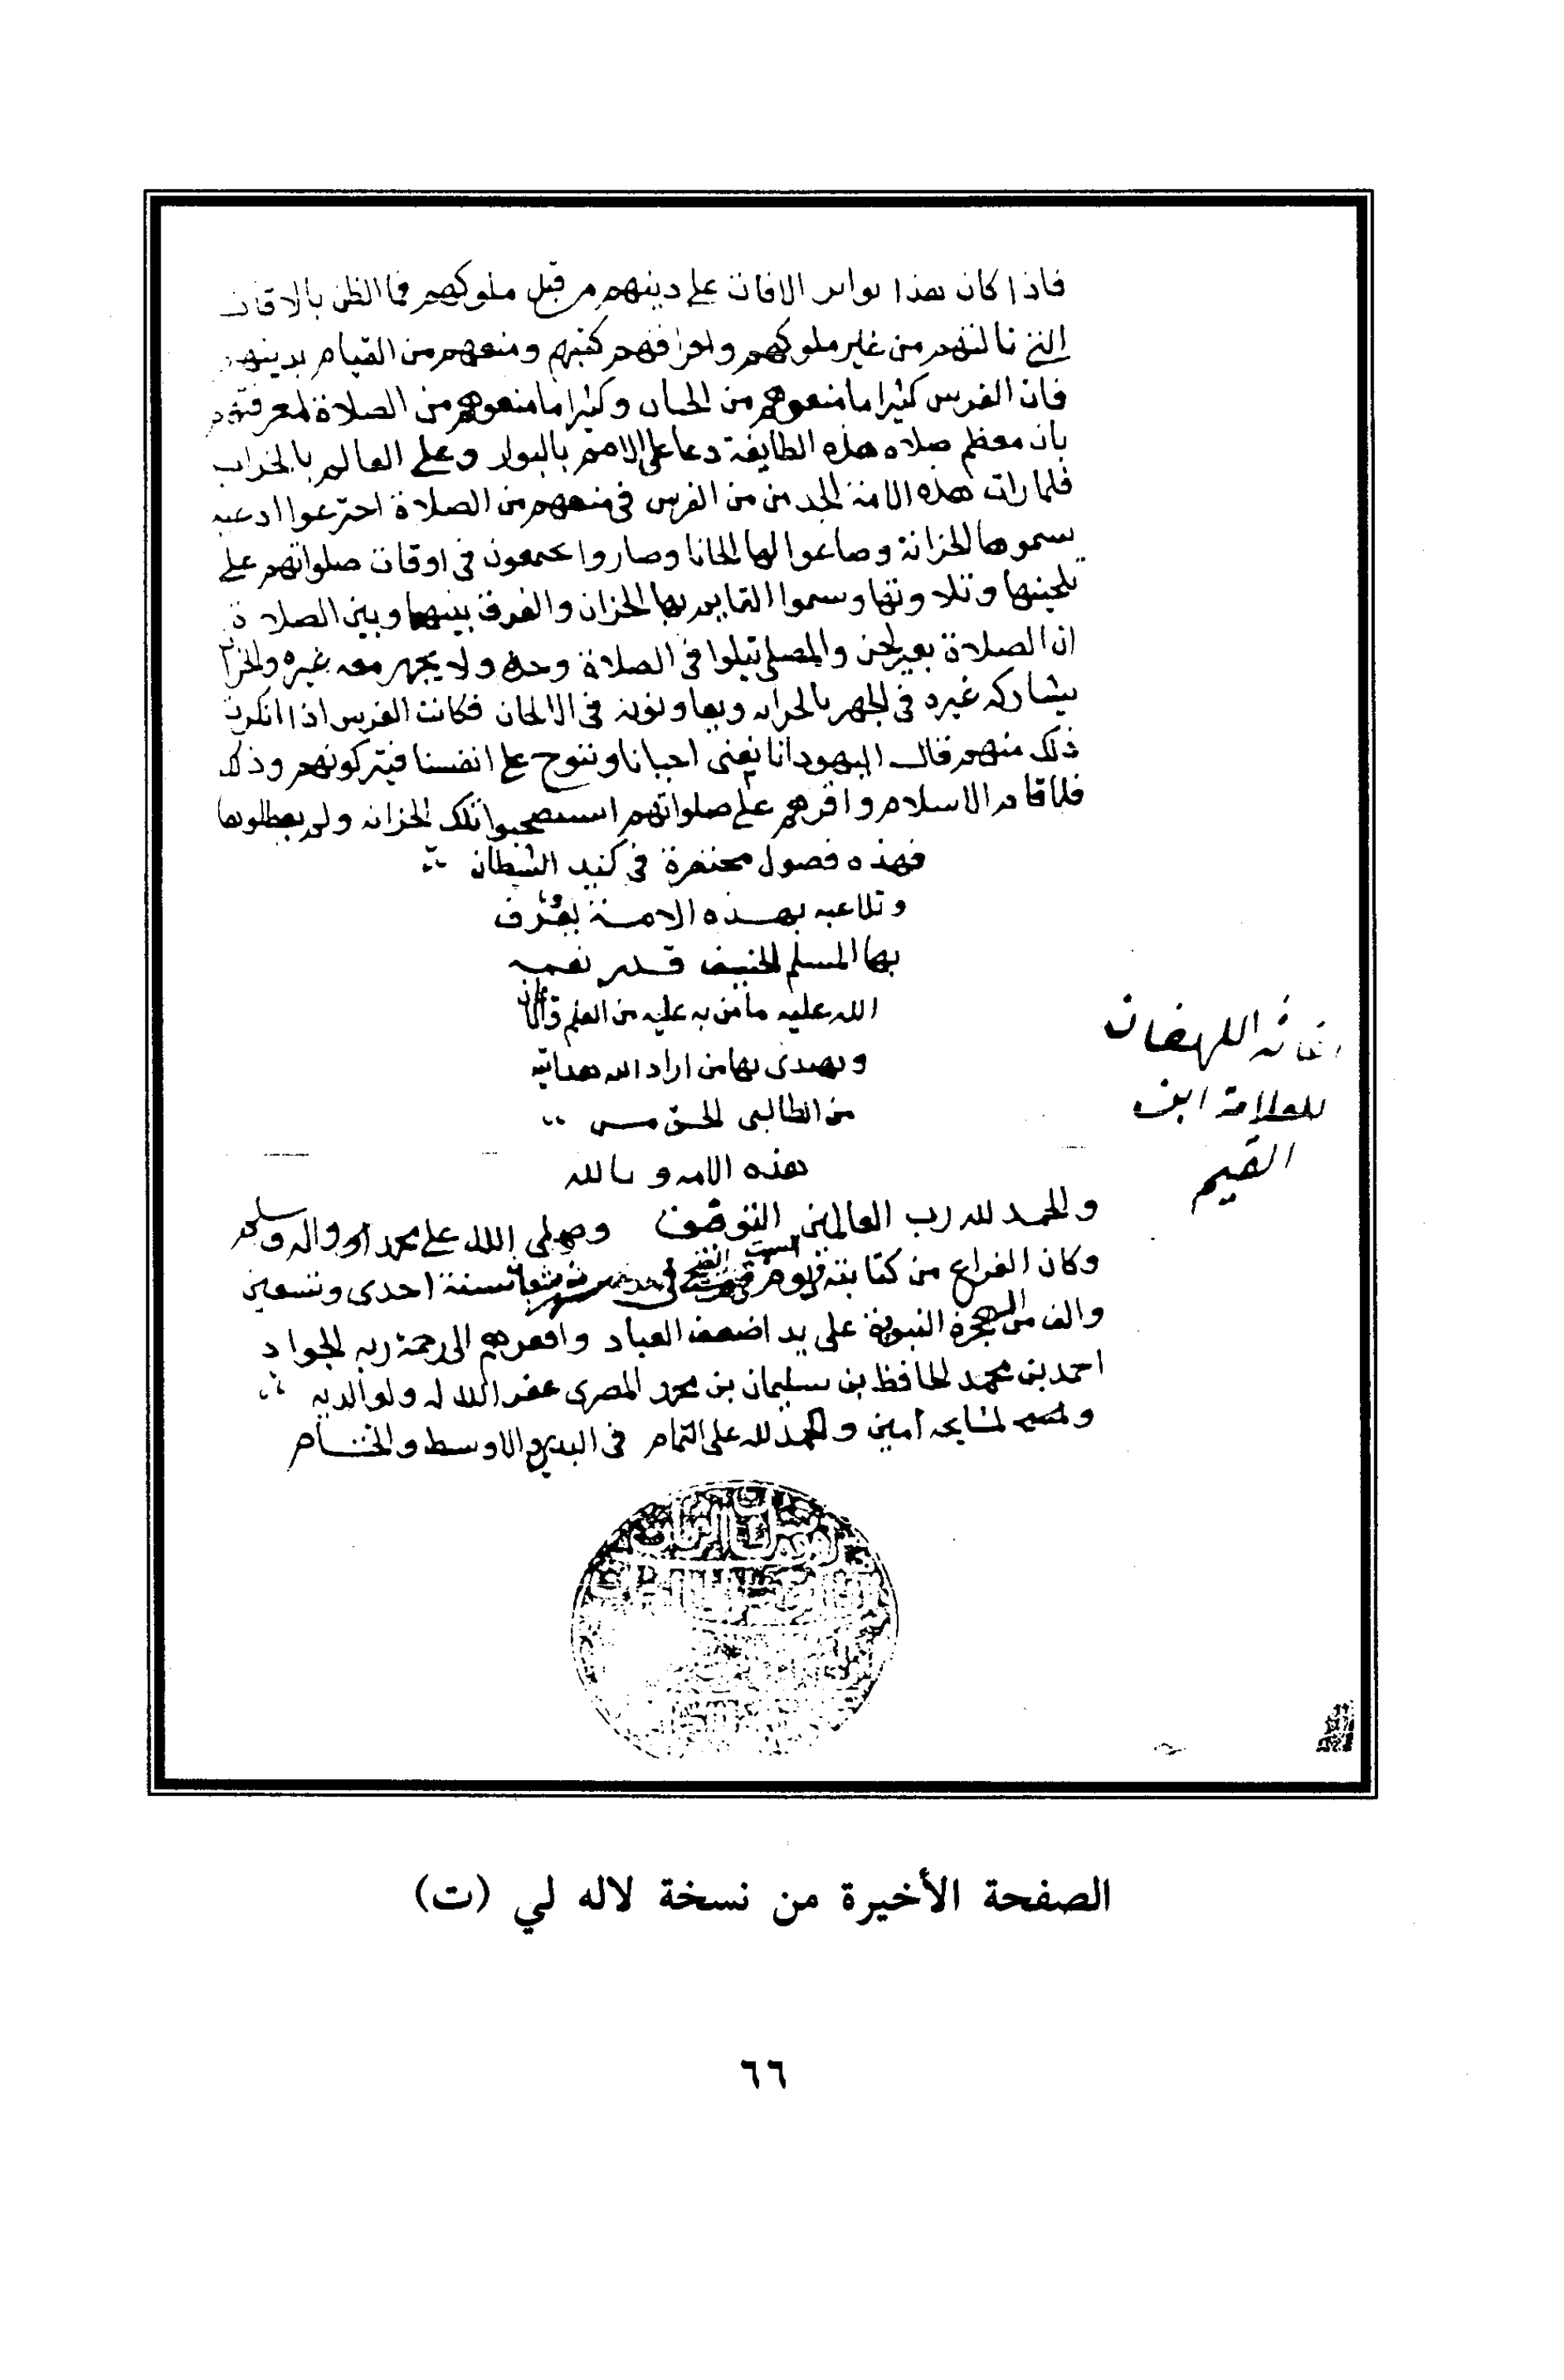 فاذا كان هذا تواتر الافات على دينهم من قبل ملوكهم فما الظن بالافات
التي نالتهم من غير ملوكهم واحراقهم كتبهم ومنعهم من القيام بدينهم
فان الفرس كثيرا ما منعوهم من الختان وكثيرا ما منعوهم من الصلاة لمعرفتهم
بان معظم صلاه هذه الطايفة دعا على الامم بالبوار وعلى العالم بالخراب
فلما رات هذه الامة الجد من الفرس في منعهم من الصلاة اخترعوا ادعيه
سموها الخزانة وصاغوا لها الحانا وصاروا يجمعون في اوقات صلواتهم على
تلحينها وتلاوتها وسموا القايم بها الخزان والفرق بينها وبين الصلاة
ان الصلاة بغير لحن والمصلي يتلوا في الصلاة وحده ولا يجهر معه غيره والخزان
يشاركه غيره في الجهر بالخزانه ويعاونونه في الالحان فكانت الفرس اذا انكرت
ذلك منهم قالت اليهود انا نغني احيانا وننوح على انفسنا فيتركونهم وذلك
فلما قام الاسلام واقرهم على صلواتهم استصحبوا تلك الخزانه ولم يعطلوها
فهذه فصول مختصرة في كيد الشيطان
وتلاعبه بهذه الامة يعرف
بها المسلم الحنيف قدر نعمة
الله عليه ما من به عليه من العلم
ويهدى بها من اراد الله هدايته
من الطالبي الحق من
هذه الامه وبالله
والحمد لله رب العالمين التوفيق وصلى الله على محمد واله وسلم
وكان الفراغ من كتابته سنة احدى وتسعين
والف من الهجرة النبوية على يد اضعف العباد وافقرهم الى رحمة ربه الجواد
احمد بن محمد الحافظ بن سليمان بن محمد المصرى غفر الله له ولوالديه
ولمشايخه امين والحمد لله على التمام في البدئ والاوسط والختام
اغاثة اللهفان
للعلامة ابن
القيم
الصفحة الأخيرة من نسخة لاله لي (ت)
٦٦